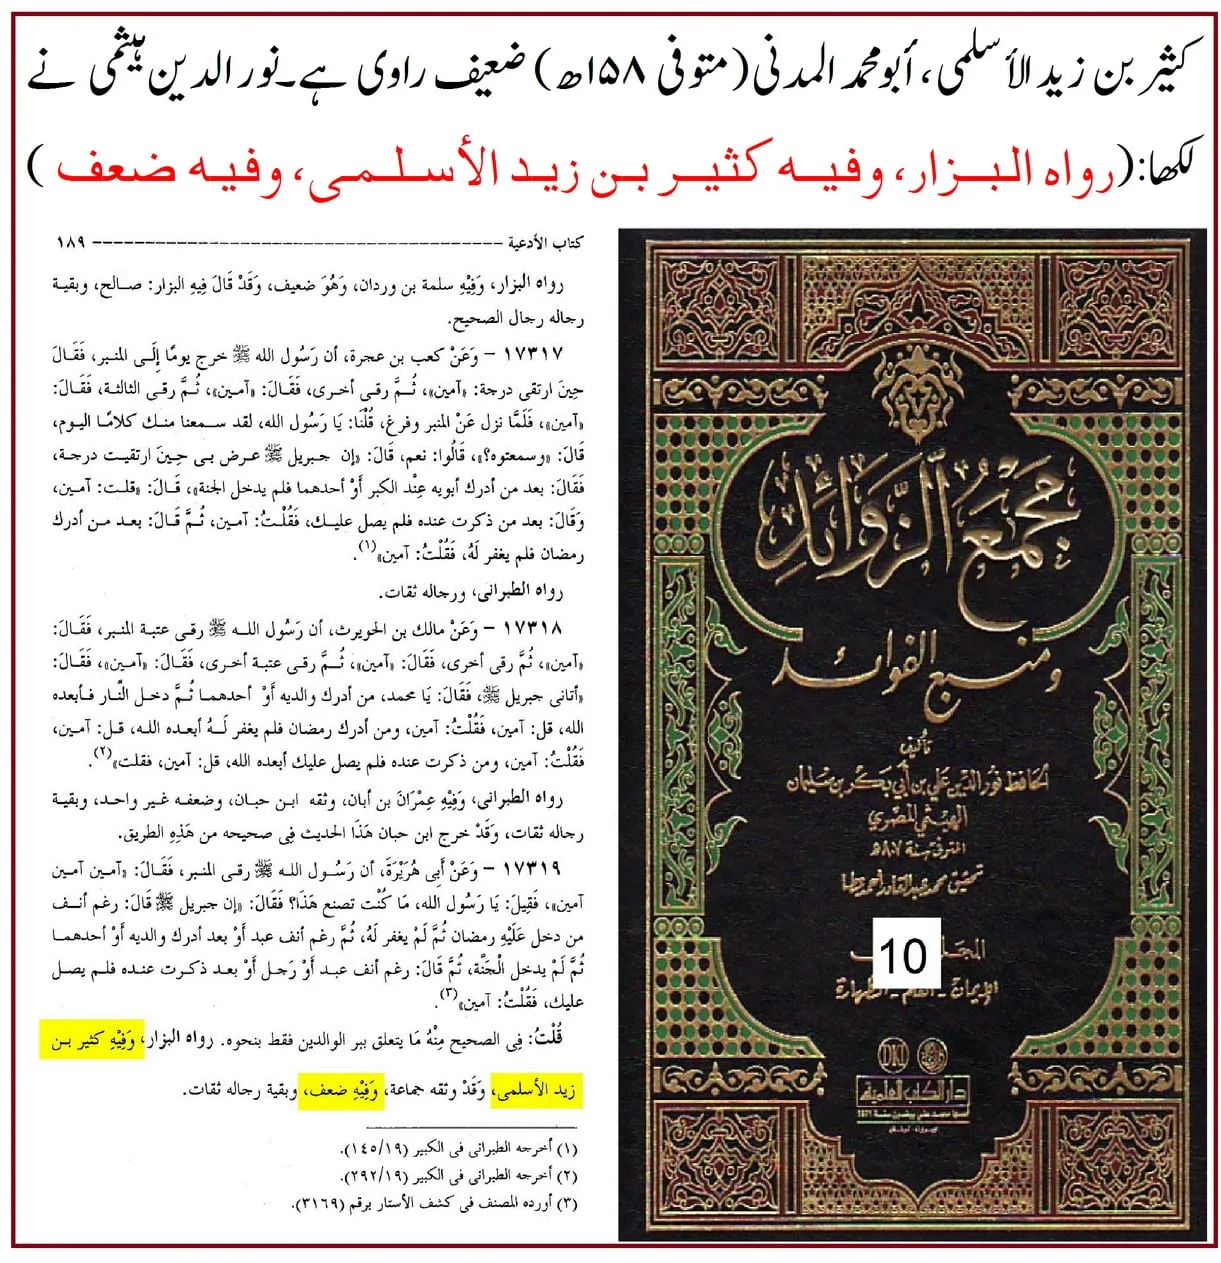 کثیر بن زید الأسلمی، أبو محمد المدنی (متوفی ۱۵۸ھ) ضعیف راوی ہے۔ نور الدین ہیثمی نے
لکھا: (رواه البزار، وفيه كثير بن زيد الأسلمى، وفيه ضعف)
كتاب الأدعية ------------------------------------------ ١٨٩
رواه البزار، وَفِيْهِ سلمة بن وردان، وَهُوَ ضعيف، وَقَدْ قَالَ فِيهِ البزار: صالح، وبقية
رجاله رجال الصحيح.
١٧٣١٧ – وَعَنْ كعب بن عجرة، أن رَسُول الله ﷺ خرج يومًا إِلَى المنبر، فَقَالَ
حِينَ ارتقى درجة: «آمين»، ثُمَّ رقى أخرى، فَقَالَ: «آمين»، ثُمَّ رقى الثالثة، فَقَالَ:
«آمين»، فَلَمَّا نزل عَنْ المنبر وفرغ، قُلْنَا: يَا رَسُول الله، لقد سمعنا منك كلامًا اليوم،
قَالَ: «وسمعتوه؟»، قَالُوا: نعم، قَالَ: «إن جبريل ﷺ عرض بى حِينَ ارتقيت درجة،
فَقَالَ: بعد من أدرك أبويه عِنْد الكبر أَوْ أحدهما فلم يدخل الجنة»، قَالَ: «قلت: آمين،
وَقَالَ: بعد من ذكرت عنده فلم يصل عليك، فَقُلْتُ: آمين، ثُمَّ قَالَ: بعد من أدرك
رمضان فلم يغفر لَهُ، فَقُلْتُ: آمين»(١).
رواه الطبرانى، ورجاله ثقات.
١٧٣١٨ – وَعَنْ مالك بن الحويرث، أن رَسُول اللـه ﷺ رقى عتبة المنبر، فَقَالَ:
«آمين»، ثُمَّ رقى أخرى، فَقَالَ: «آمين»، ثُمَّ رقى عتبة أخرى، فَقَالَ: «آمين»، فَقَالَ:
«أتانى جبريل ﷺ، فَقَالَ: يَا محمد، من أدرك والديه أَوْ أحدهما ثُمَّ دخل النَّار فأبعده
الله، قل: آمين، فَقُلْتُ: آمين، ومن أدرك رمضان فلم يغفر لَهُ أبعده الله، قل: آمين،
فَقُلْتُ: آمين، ومن ذكرت عنده فلم يصل عليك أبعده الله، قل: آمين، فقلت»(٢).
رواه الطبرانى، وَفِيْهِ عِمْرَانَ بن أبان، وثقه ابن حبان، وضعفه غير واحد، وبقية
رجاله ثقات، وَقَدْ خرج ابن حبان هَذَا الحديث فِى صحيحه من هَذِهِ الطريق.
١٧٣١٩ – وَعَنْ أَبِى هُرَيْرَةَ، أن رَسُول الله ﷺ رقى المنبر، فَقَالَ: «آمين آمين
آمين»، فَقِيلَ: يَا رَسُول الله، مَا كُنْت تصنع هَذَا؟ فَقَالَ: «إن جبريل ﷺ قَالَ: رغم أنف
من دخل عَلَيْهِ رمضان ثُمَّ لَمْ يغفر لَهُ، ثُمَّ رغم أنف عبد أَوْ بعد أدرك والديه أَوْ أحدهما
ثُمَّ لَمْ يدخل الْجَنَّة، ثُمَّ قَالَ: رغم أنف عبد أَوْ رَجل أَوْ بعد ذكرت عنده فلم يصل
عليك، فَقُلْتُ: آمين»(٣).
قُلْتُ: فِى الصحيح مِنْهُ مَا يتعلق ببر الوالدين فقط بنحوه. رواه البزار، وَفِيْهِ كثير بن
زيد الأسلمى، وَقَدْ وثقه جماعة، وَفِيْهِ ضعف، وبقية رجاله ثقات.
(١) أخرجه الطبرانى فى الكبير (١٤٥/١٩).
(٢) أخرجه الطبرانى فى الكبير (٢٩٢/١٩).
(٣) أورده المصنف فى كشف الأستار برقم (٣١٦٩).
مجمع الزوائد
ومنبع الفوائد
تأليف
الحافظ نور الدين علي بن أبي بكر بن سليمان
الهيثمي المصري
المتوفى سنة ٨٠٧هـ
تحقيق محمد عبد القادر أحمد عطا
10
الإيمان - العلم - الطهارة
DKI
دار الكتب العلمية